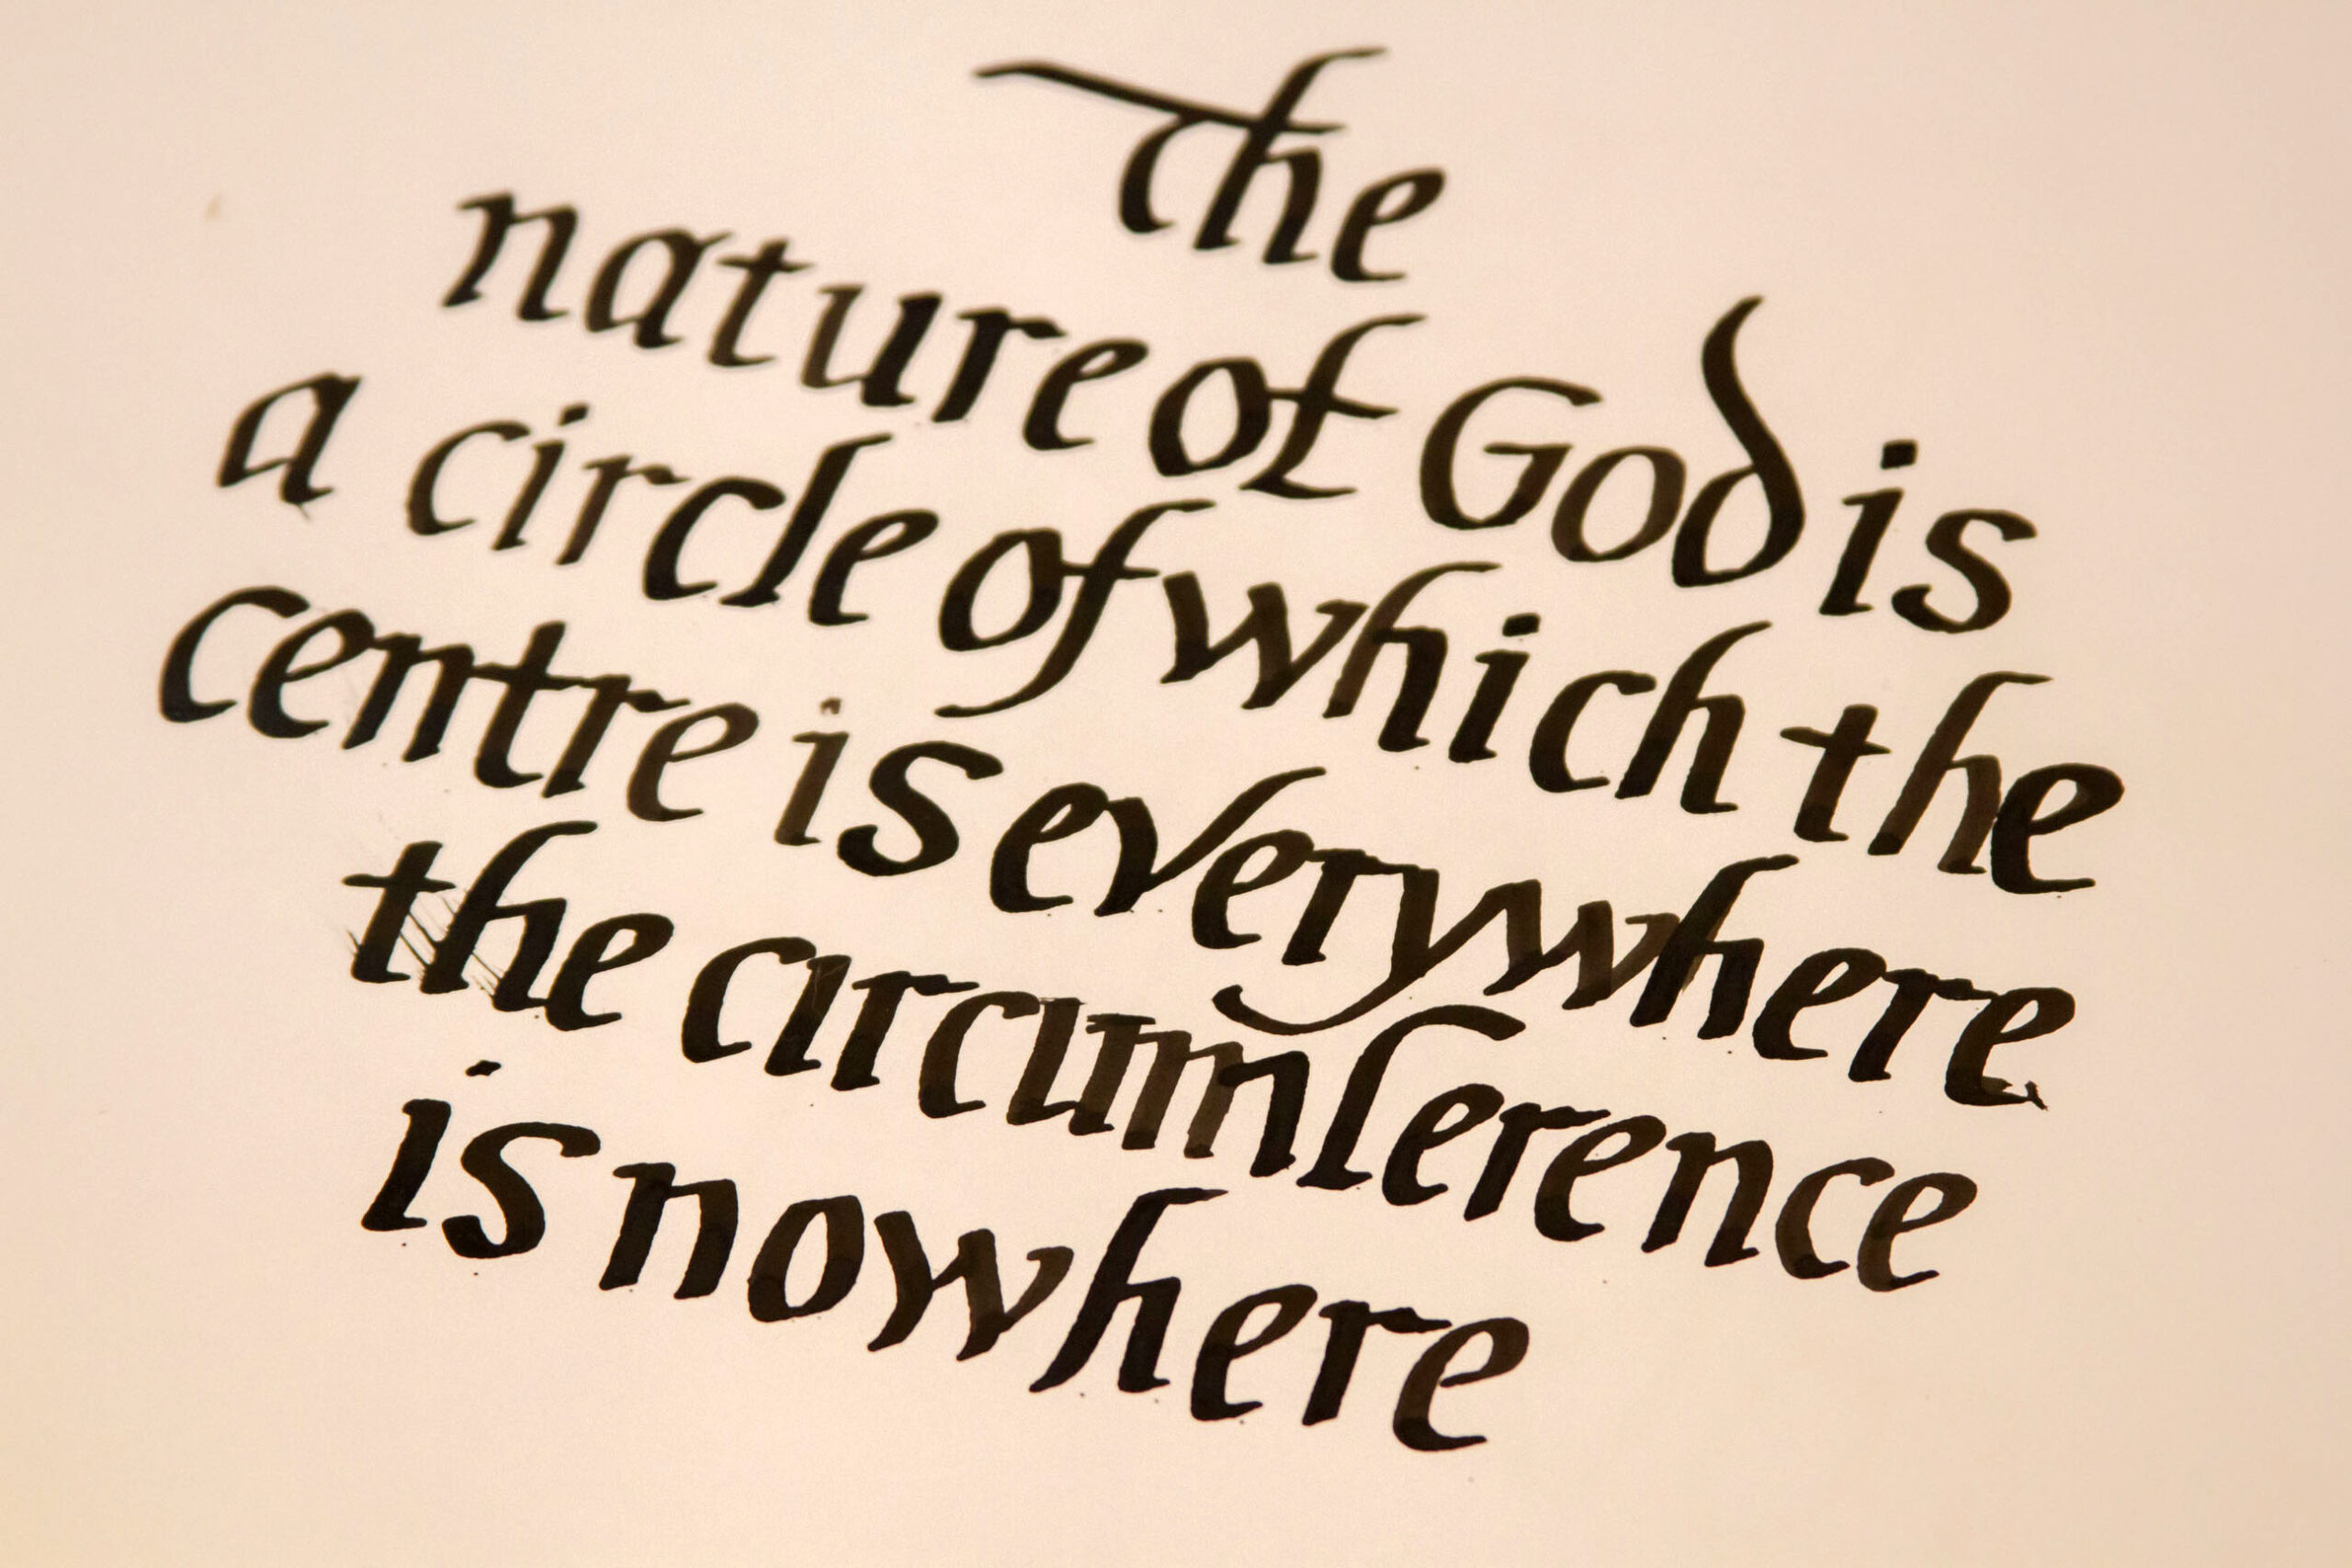 the
nature of God is
a circle of which the
centre is everywhere
the circumference
is nowhere